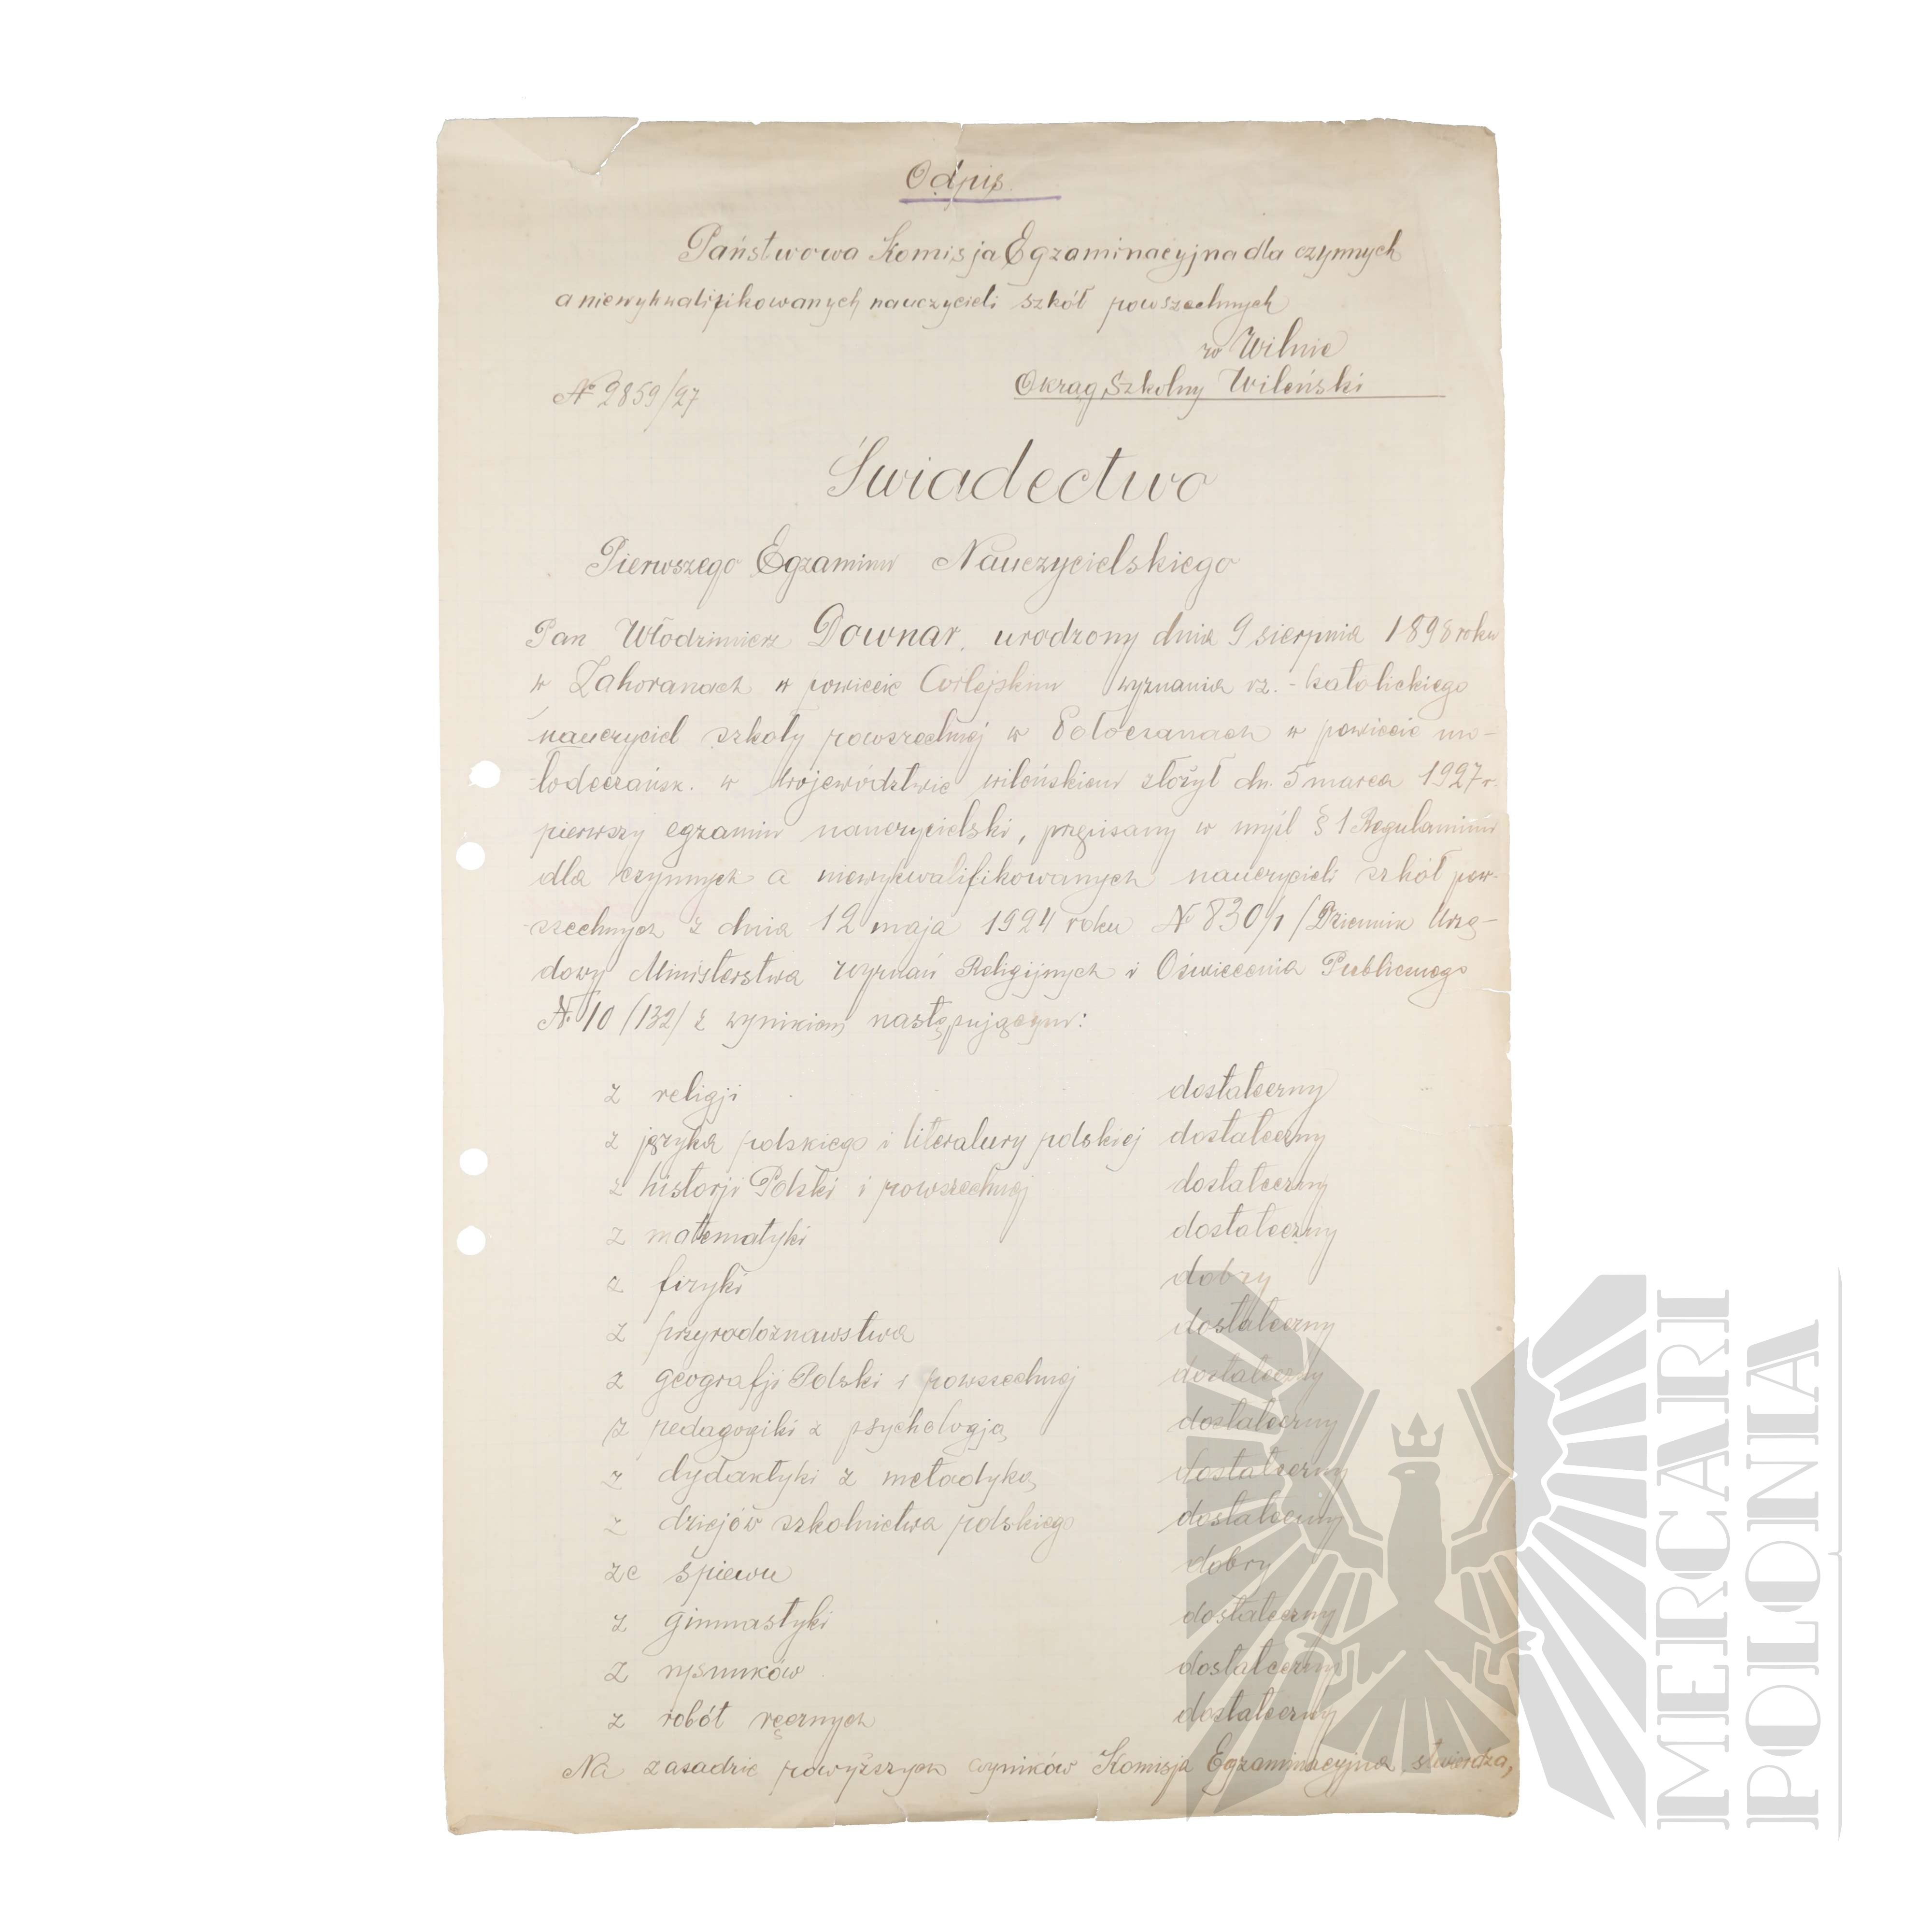 Odpis
Państwowa Komisja Egzaminacyjna dla czynnych
a niewykwalifikowanych nauczycieli szkół powszechnych
w Wilnie
№ 2859/27
Okrąg Szkolny Wileński
Świadectwo
Pierwszego Egzaminu Nauczycielskiego
Pan Włodzimierz Downar, urodzony dnia 9 sierpnia 1898 roku
w Zahoranach w powiecie wyznania rz.-katolickiego
nauczyciel szkoły powszechnej w Połoczanach w powiecie mo-
łodeczańsk. w województwie wileńskiem złożył dn. 5 marca 1927 r.
pierwszy egzamin nauczycielski, przepisany w myśl § 1 Regulaminu
dla czynnych a niewykwalifikowanych nauczycieli szkół pow-
szechnych z dnia 12 maja 1924 roku № 830/1 /Dziennik Urzę-
dowy Ministerstwa Wyznań Religijnych i Oświecenia Publicznego
№ 10 /132/ z wynikiem następującym:
z religji dostateczny
z języka polskiego i literatury polskiej dostateczny
z historji Polski i powszechnej dostateczny
z matematyki dostateczny
z fizyki dobry
z przyrodoznawstwa dostateczny
z geografji Polski i powszechnej dostateczny
z pedagogiki z psychologją dostateczny
z dydaktyki z metodyką dostateczny
z dziejów szkolnictwa polskiego dostateczny
ze śpiewu dobry
z gimnastyki dostateczny
z rysunków dostateczny
z robót ręcznych dostateczny
Na zasadzie powyższych wyników Komisja Egzaminacyjna stwierdza,
MERCARI
POLONIA